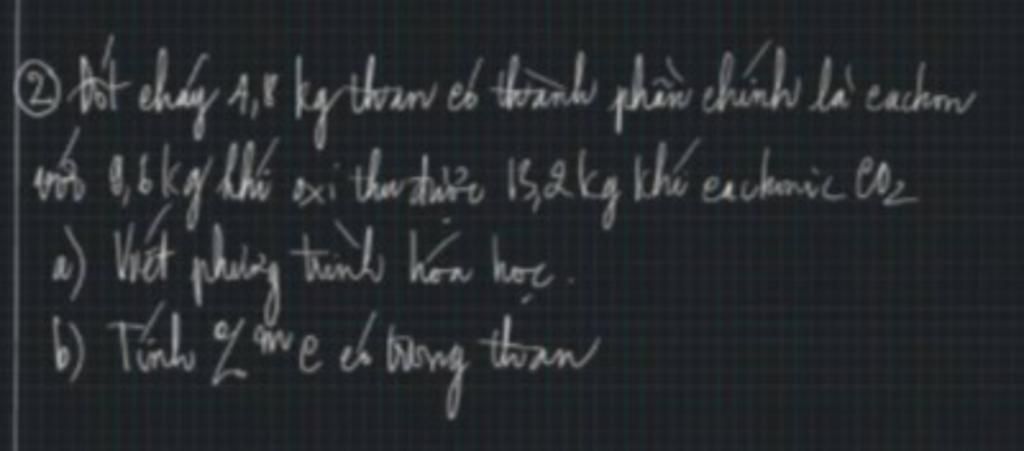 ② Đốt cháy 4,8 kg than có thành phần chính là cachon
với 9,6 kg khí oxi thu được 13,2 kg khí cachonic CO₂
a) Viết phương trình hóa học.
b) Tính % m C có trong than